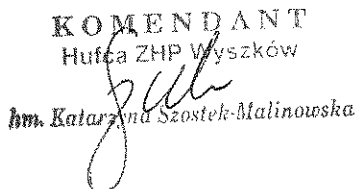 KOMENDANT
Hufca ZHP Wyszków
hm. Katarzyna Szostek-Malinowska